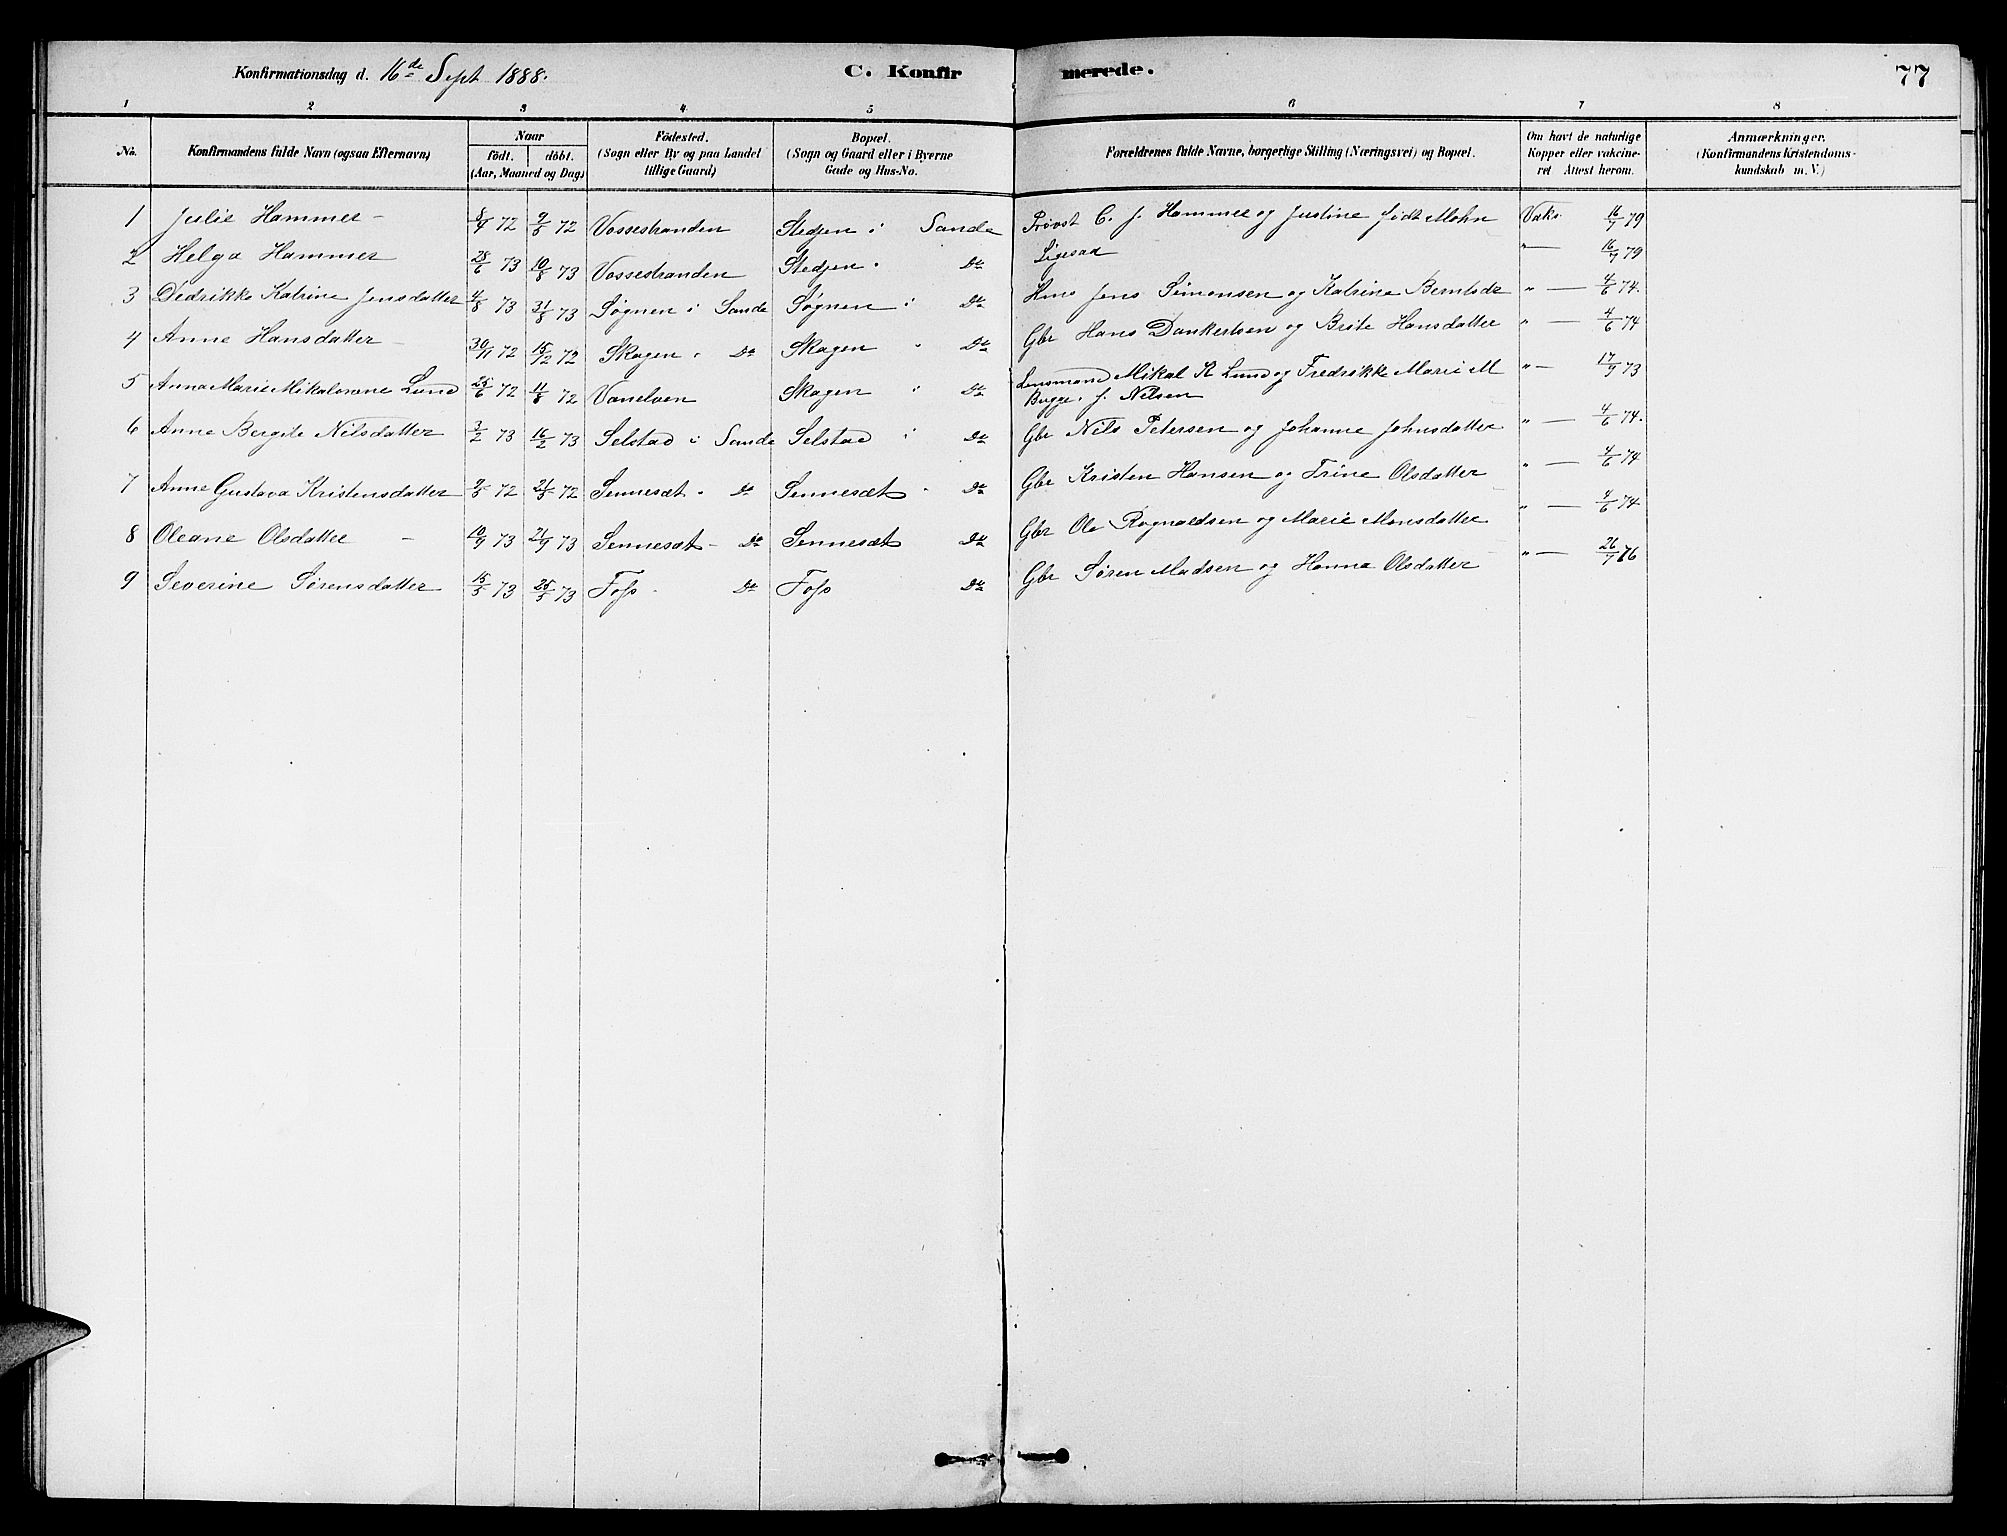 Konfirmationsdag d. 16de Sept 1888. C. Konfirmerede. 77
1 2 3 4 5 6 7 8
No. Konfirmandens fulde Navn (ogsaa Efternavn) Naar født. døbt. (Aar, Maaned og Dag) Fødested. (Sogn eller By og paa Landet tillige Gaard) Bopæl. (Sogn og Gaard eller i Byerne Gade og Hus-No. Forældrenes fulde Navne, borgerlige Stilling (Næringsvei) og Bopæl. Om havt de naturlige Kopper eller vakcineret. Attest herom. Anmærkninger. (Konfirmandens Kristendomskundskab m. V.)
1 Julie Hammer - 8/4 72 9/8 72 Vossestranden Stedjen i Sande Provst C. J. Hammer og Justine født Mohn Vaks 16/7 79
2 Helga Hammer 28/6 73 10/8 73 Vossestranden Stedjen " Do Ligesaa " — 16/7 79
3 Didrikke Katrine Jensdatter 4/8 73 31/8 73 Søgnen i Sande Søgnen i Do Hms Jens Simonsen og Katrine Berntsdr " — 4/6 74.
4 Anne Hansdatter - 30/11 72 15/12 72 Skagen " Do Skagen " Do Gbr Hans Dankertsen og Brite Hansdatter " — 4/6 74
5 Anna Marie Mikalovne Lund 25/6 72 11/8 72 Vanelven Skagen i Do Lensmand Mikal R Lund og Fredrikke Marie M " — 17/9 73
Bugge f. Nilsen
6 Anne Bergite Nilsdatter 3/2 73 16/2 73 Selstad i Sande Selstad i Do Gbr Nils Petersen og Johanne Johnsdatter " — 4/6 74.
7 Anne Gustava Kristensdatter 9/8 72 21/8 72 Sennesæt " Do Sennesæt " Do Gbr Kristen Hansen og Trine Olsdatter " — 4/6 74
8 Oleane Olsdatter - 10/9 73 21/9 73 Sennesæt - Do Sennesæt Do Gbr Ole Rognaldsen og Marie Monsdatter " — 4/6 74
9 Severine Sørensdatter 15/5 73 25/5 73 Foss " Do Foss Do Gbr Søren Madsen og Hanna Olsdatter " — 26/7 76